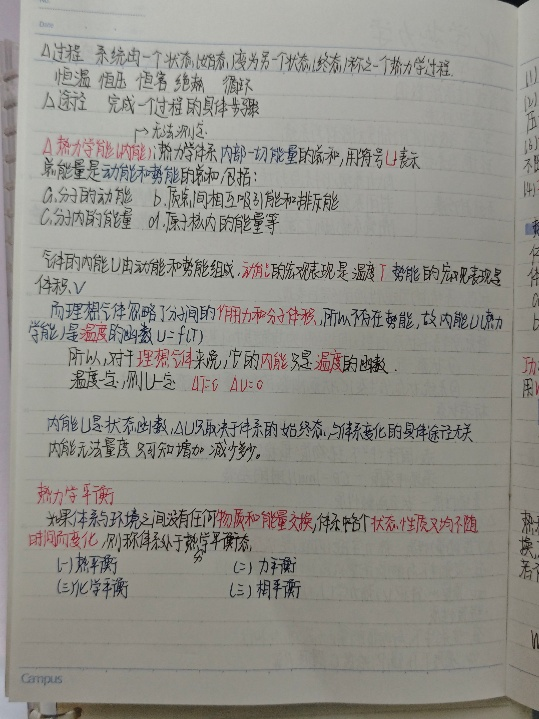 △过程 系统由一个状态(始态)变为另一个状态(终态)称之一个热力学过程.
恒温 恒压 恒容 绝热 循环
△途径 完成一个过程的具体步骤
无法测定
△热力学能(内能):热力学体系内部一切能量的总和,用符号U表示
总能量是动能和势能的总和,包括:
a.分子的动能 b.质点间相互吸引能和排斥能
c.分子内的能量 d.原子核内的能量等
气体的内能U由动能和势能组成.动能的宏观表现是温度T 势能的宏观表现是
体积V
而理想气体忽略了分子间的作用力和分子体积,所以不存在势能,故内能U(热力
学能)是温度的函数 U=f(T)
所以,对于理想气体来说,它的内能只是温度的函数.
温度一定,则U一定 ΔT=0 ΔU=0
内能U是状态函数,ΔU只取决于体系的始终态,与体系变化的具体途径无关
内能无法量度 只可知增加 减少多少。
热力学平衡
如果体系与环境之间没有任何物质和能量交换,体系中各个状态性质又均不随
时间而变化,则称体系处于热力学平衡态,
(一)热平衡 (二)力平衡
(三)化学平衡 (三)相平衡
Campus